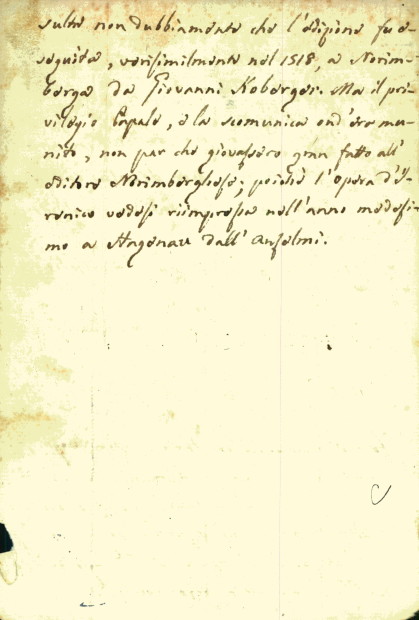 sulta non dubbiamente che l'edizione fu e-
seguita, verisimilmente nel 1518, a Norim-
berga da Giovanni Koberger. Ma il pri-
vilegio Papale, e la scomunica ond'era mu-
nito, non par che giovassero gran fatto all'
editore Norimberghese; poichè l'opera d'I-
renico vedesi riimpressa nell'anno medesi-
mo a Hagenau dall'Anselmi.